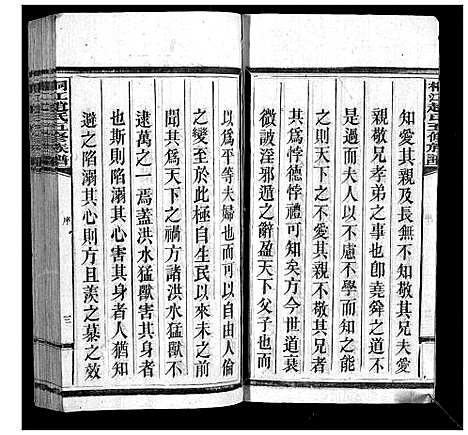 知愛其親及長無不知敬其兄夫愛
親敬兄孝弟之事也即堯舜之道不
是過而夫人以不慮不學而知之能
於天下之不愛其親不敬其兄者
其為悖德悖禮可知矣方今世道衰
微詖淫邪遁之辭盈天下父子也而
以為平等夫婦也而以自由人倫
之變至於此極自生民以來未之前
聞其為天下之禍方諸洪水猛獸不
逮萬之一焉蓋洪水猛獸害其身者
也斯則陷溺其心害其身者人猶知
避之陷溺其心則方且羨之慕之效
桐江趙氏五修族譜
序
三